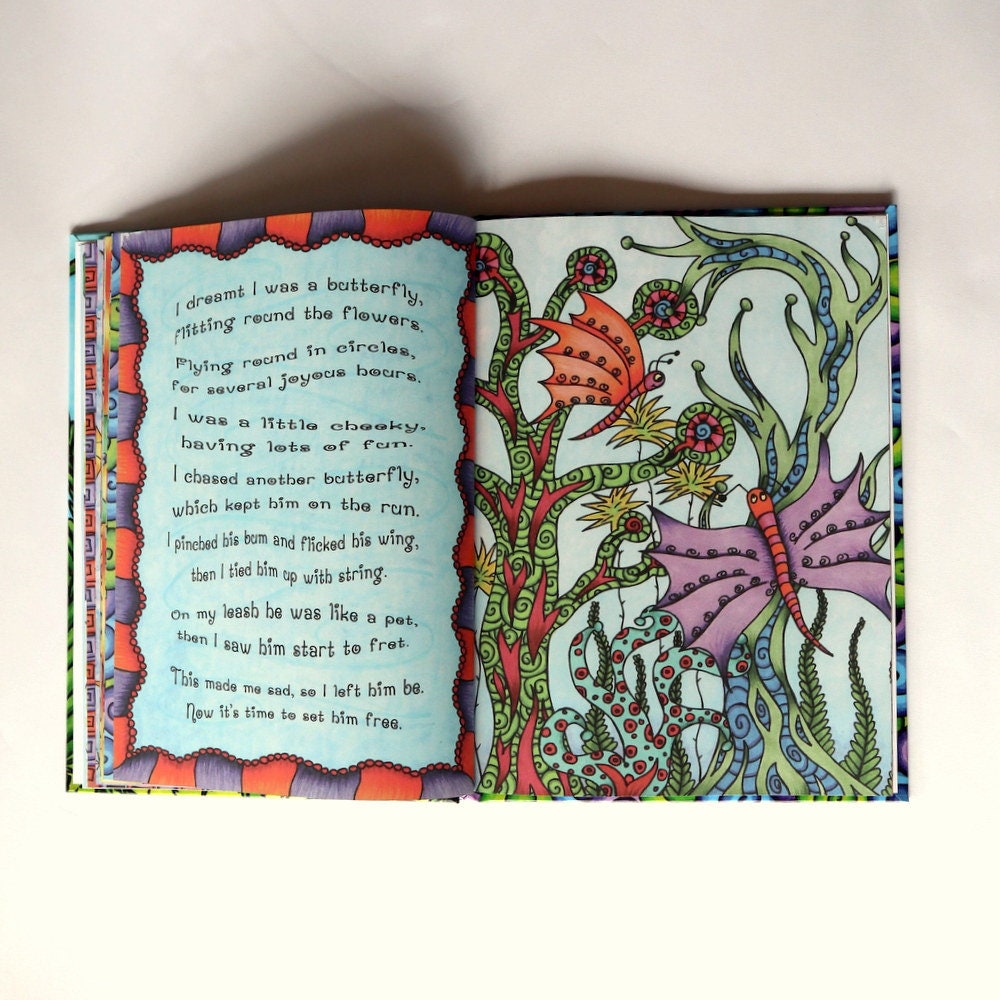 I dreamt I was a butterfly,
flitting round the flowers.
Flying round in circles,
for several joyous hours.
I was a little cheeky,
having lots of fun.
I chased another butterfly,
which kept him on the run.
I pinched his bum and flicked his wing,
then I tied him up with string.
On my leash he was like a pet,
then I saw him start to fret.
This made me sad, so I left him be.
Now it's time to set him free.